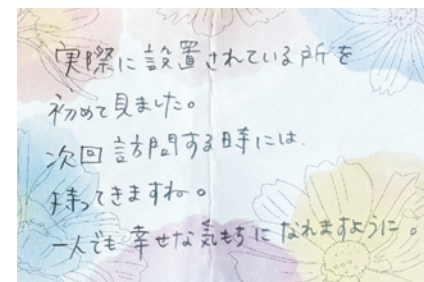 実際に設置されている所を
初めて見ました。
次回訪問する時には、
持ってきますね。
一人でも幸せな気もちになれますように。